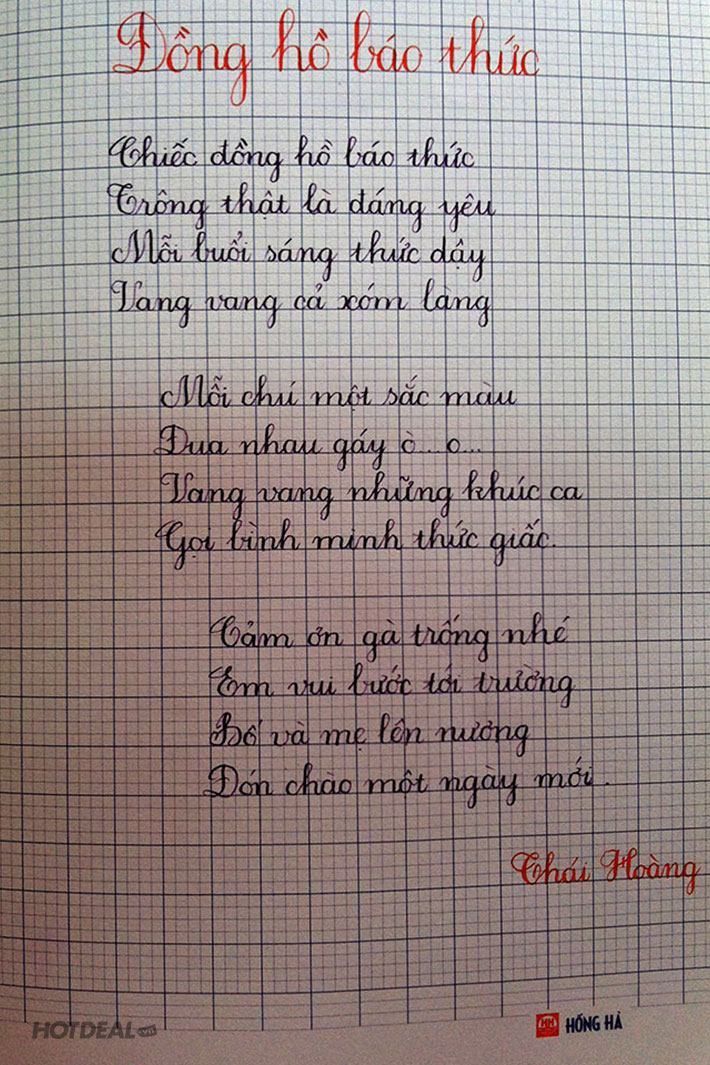 Đồng hồ báo thức
Chiếc đồng hồ báo thức
Trông thật là đáng yêu
Mỗi buổi sáng thức dậy
Vang vang cả xóm làng
Mỗi chú một sắc màu
Đua nhau gáy ò... o...
Vang vang những khúc ca
Gọi bình minh thức giấc.
Cảm ơn gà trống nhé
Em vui bước tới trường
Bố và mẹ lên nương
Đón chào một ngày mới.
Thái Hoàng
HOTDEAL.VN
HH HỒNG HÀ